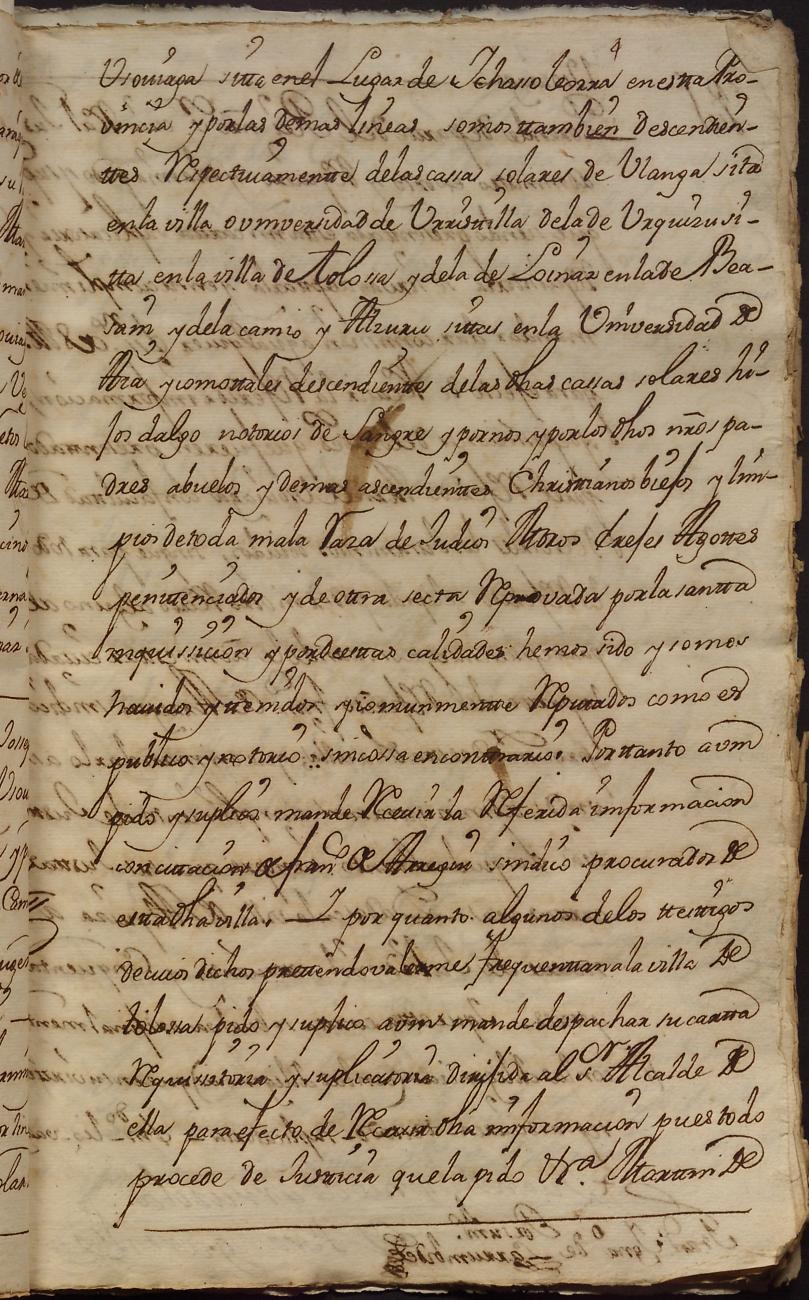 4
Usoviaga sitta en el Lugar de Ichassolcorra en estta Pro-
vincia y por las demas lineas somos ttambien Descendien-
ttes Respectivamentte de las cassas solares de Vlanga sita
en la villa o vniversidad de Vrrisvilla de la de Vrquizu si-
tta en la villa de tolossa y de la de Loinaz en la de Bea-
sain y de la camio y Alzuru sittas en la Vniversidad de
Atta y como ttales descendienttes de las dhas cassas solares hi-
jos dalgo notorios de Sangre y por nos y por los dhos nros pa-
dres abuelos y demas ascendienttes Christianos biejos y lim-
pios de toda mala Raza de Judios Moros erejes Agottes
penittenciados y de ottra secta Reprovada por la santta
inquissicion y por de esttas calidades hemos sido y somos
havidos y ttenidos y comunmentte Reputtados como es
publico y nottorio sin cossa en conttrario. Por ttanto a vm
pido y suplico mande Recevir la Referida informacion
con cittacion de fran.co de Arregui sindico procurador de
estta dha villa. — I por quanto algunos de los ttesttigos
de cuios dichos prettendo valerme frequenttan a la villa de
tolossa pido y suplico a vm mande despachar su cartta
Requisittoria y suplicattoria dirijida al s.r Alcalde de
ella para efecto de Recevir dha informacion pues todo
procede de Justticia que la pido &.a Marttin de